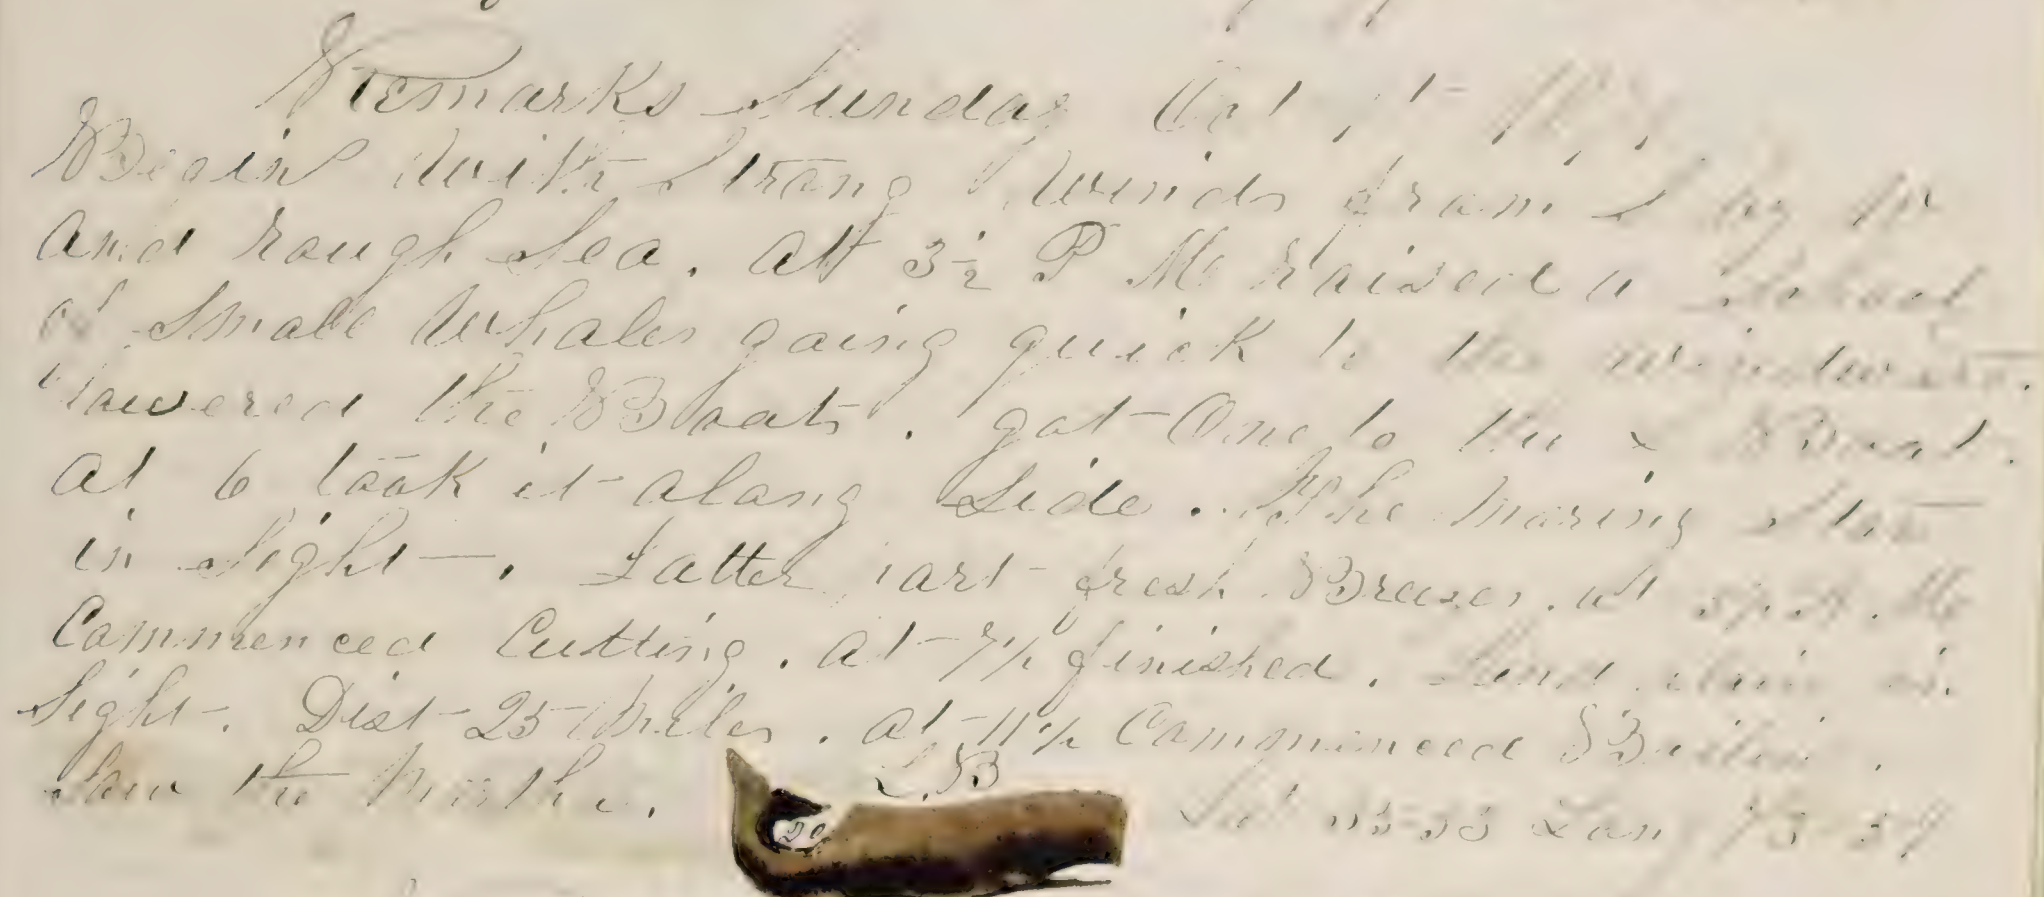 Remarks Sunday Oct 1st
Begins With Strong Winds from S by W
and rough Sea. At 3½ P M raised a School
of Small Whales going quick to the windward.
lowered the Boats. got One to the Boat.
at 6 took it along Side. The Moring Star
in Sight. Latter part fresh Breezes. at M
Commenced Cutting. at 7½ finished. Land in
Sight. Dist 25 Miles. at 11½ Commenced Boiling.
Saw the
L.B
20
Lat Lon